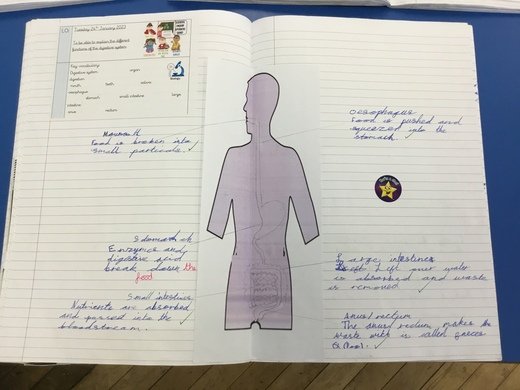 LO:
Tuesday 24th January 2023
To be able to explain the different
functions of the digestive system.
Key vocabulary:
Digestive system organ
digestion
mouth teeth saliva
oesophagus
stomach small intestine large
intestine
anus rectum
Mouth
Food is broken into
small particals.
Stomach
Enzymes and
digestive acid
break down the
food
Small intestines
Nutrients are absorbed
and passed into the
bloodstream.
Oesophagus
Food is pushed and
squeezed into the
stomach.
Large intestines
left over water
is absorbed and waste
is removed
Anus/rectum
The anus/rectum makes the
waste is called faeces